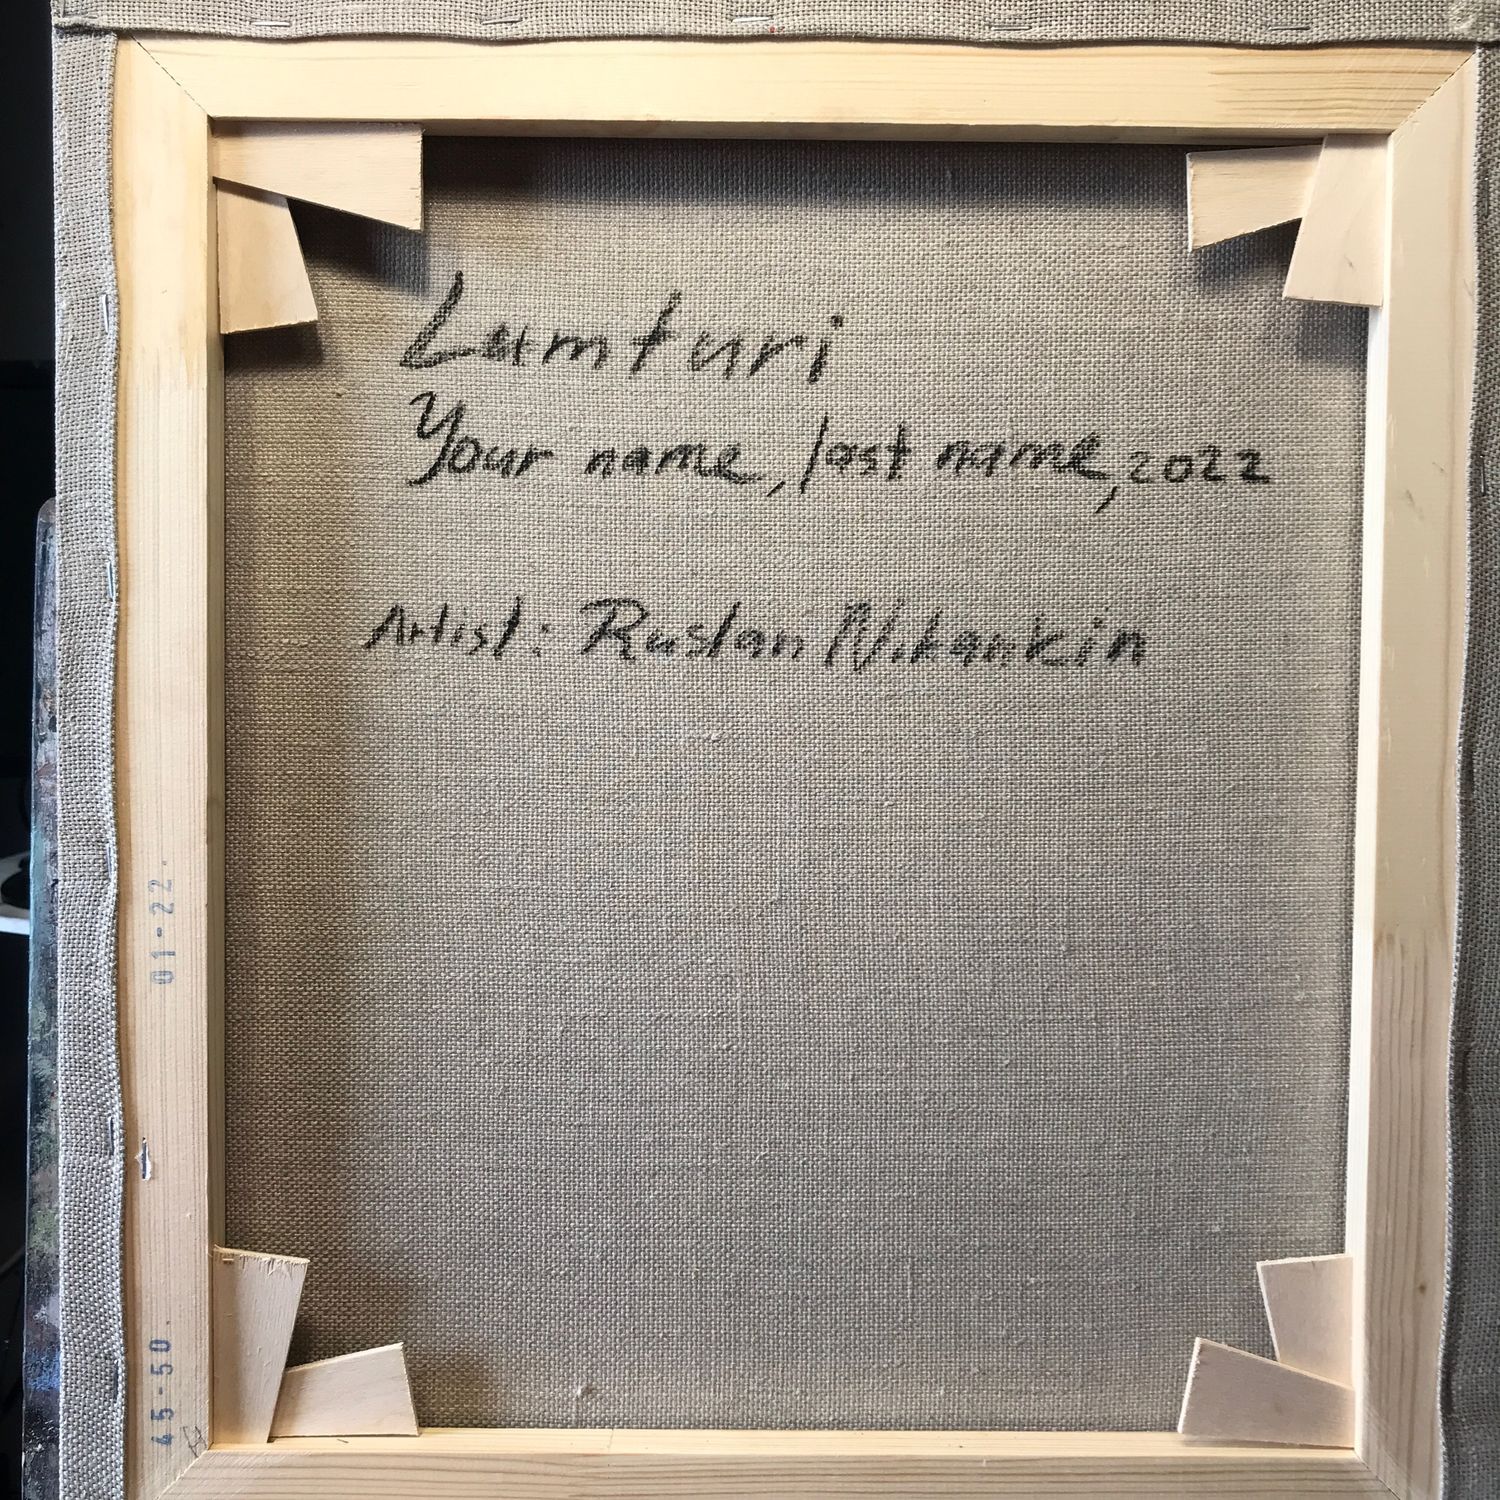 Lumturi
Your name, last name, 2022
Artist: Ruslan Nikankin
01-22.
45-50.